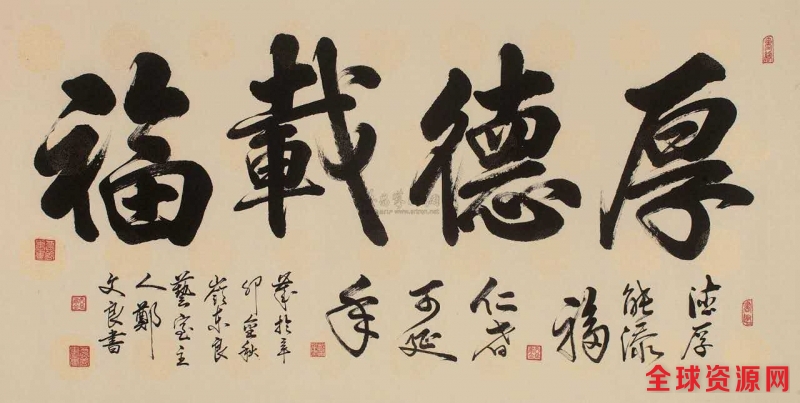 厚德載福
德厚
能添
福
仁者
可延
年
筆於辛
卯金秋
嶺東良
藝室主
人鄭
文良書
全球资源网